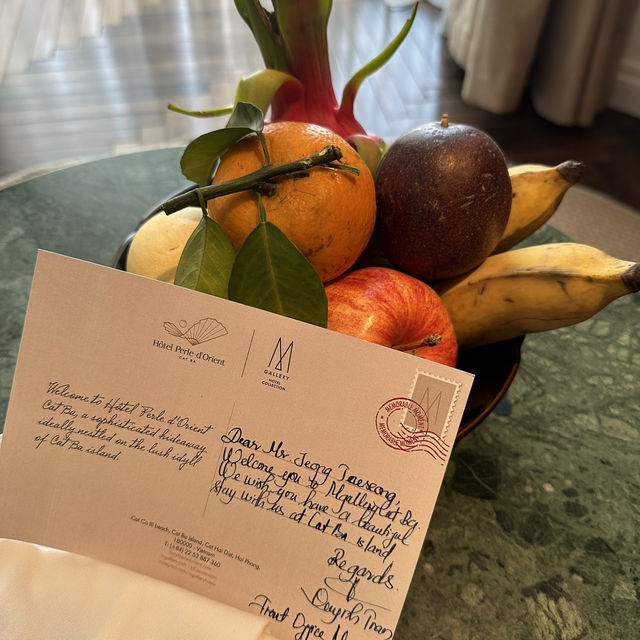 Hôtel Perle d'Orient
CAT BA
M
GALLERY
HOTEL
COLLECTION
MEMORABLE MOMENT
MEMORABLE MOMENT
Welcome to Hôtel Perle d'Orient
Cat Ba, a sophisticated hideaway
ideally nestled on the lush idyll
of Cat Ba island.
Dear Mr. Jeong Taeseong,
Welcome you to Mgallery Cat Ba
We wish you have a beautiful
stay with us at Cat Ba island
Regards.
Quynh Tran
Front Office M
Cat Co III beach, Cat Ba Island, Cat Hai Dist, Hai Phong,
180000 - Vietnam
T: (+84) 22 53 887 360